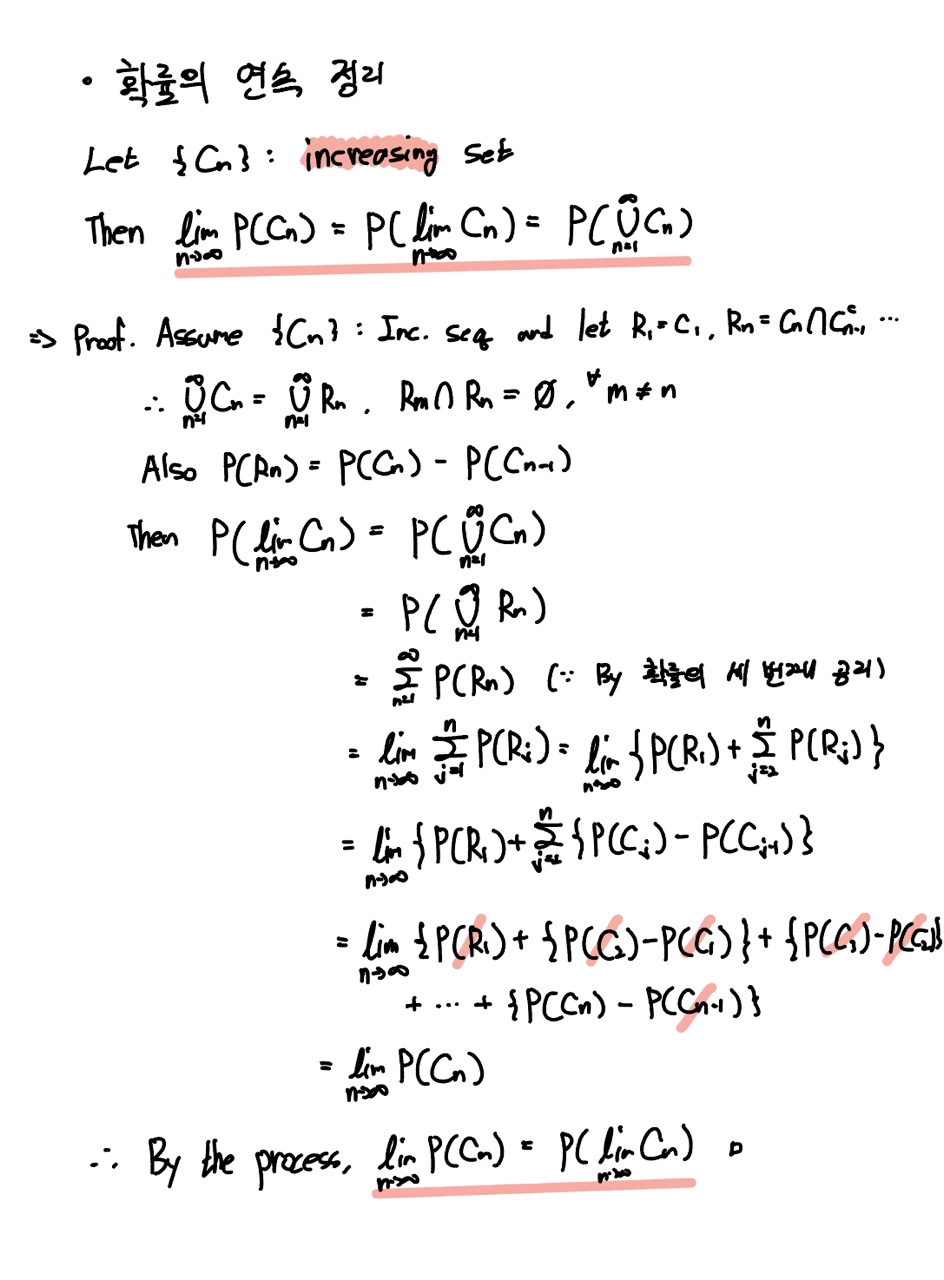 • 확률의 연속 정리
Let {Cₙ} : increasing set
Then lim_{n→∞} P(Cₙ) = P(lim_{n→∞} Cₙ) = P(⋃_{n=1}^{∞} Cₙ)
⇒ Proof. Assume {Cₙ} : Inc. seq and let R₁ = C₁, Rₙ = Cₙ ∩ Cₙ₋₁ᶜ, ⋯
∴ ⋃_{n=1}^{∞} Cₙ = ⋃_{n=1}^{∞} Rₙ, Rₘ ∩ Rₙ = ∅, ∀ m ≠ n
Also P(Rₙ) = P(Cₙ) - P(Cₙ₋₁)
Then P(lim_{n→∞} Cₙ) = P(⋃_{n=1}^{∞} Cₙ)
= P(⋃_{n=1}^{∞} Rₙ)
= ∑_{n=1}^{∞} P(Rₙ) (∵ By 확률의 세 번째 공리)
= lim_{n→∞} ∑_{j=1}^{n} P(Rⱼ) = lim_{n→∞} {P(R₁) + ∑_{j=2}^{n} P(Rⱼ)}
= lim_{n→∞} {P(R₁) + ∑_{j=2}^{n} {P(Cⱼ) - P(Cⱼ₋₁)}
= lim_{n→∞} {P(R₁) + {P(C₂) - P(C₁)} + {P(C₃) - P(C₂)}
+ ⋯ + {P(Cₙ) - P(Cₙ₋₁)}
= lim_{n→∞} P(Cₙ)
∴ By the process, lim_{n→∞} P(Cₙ) = P(lim_{n→∞} Cₙ) □